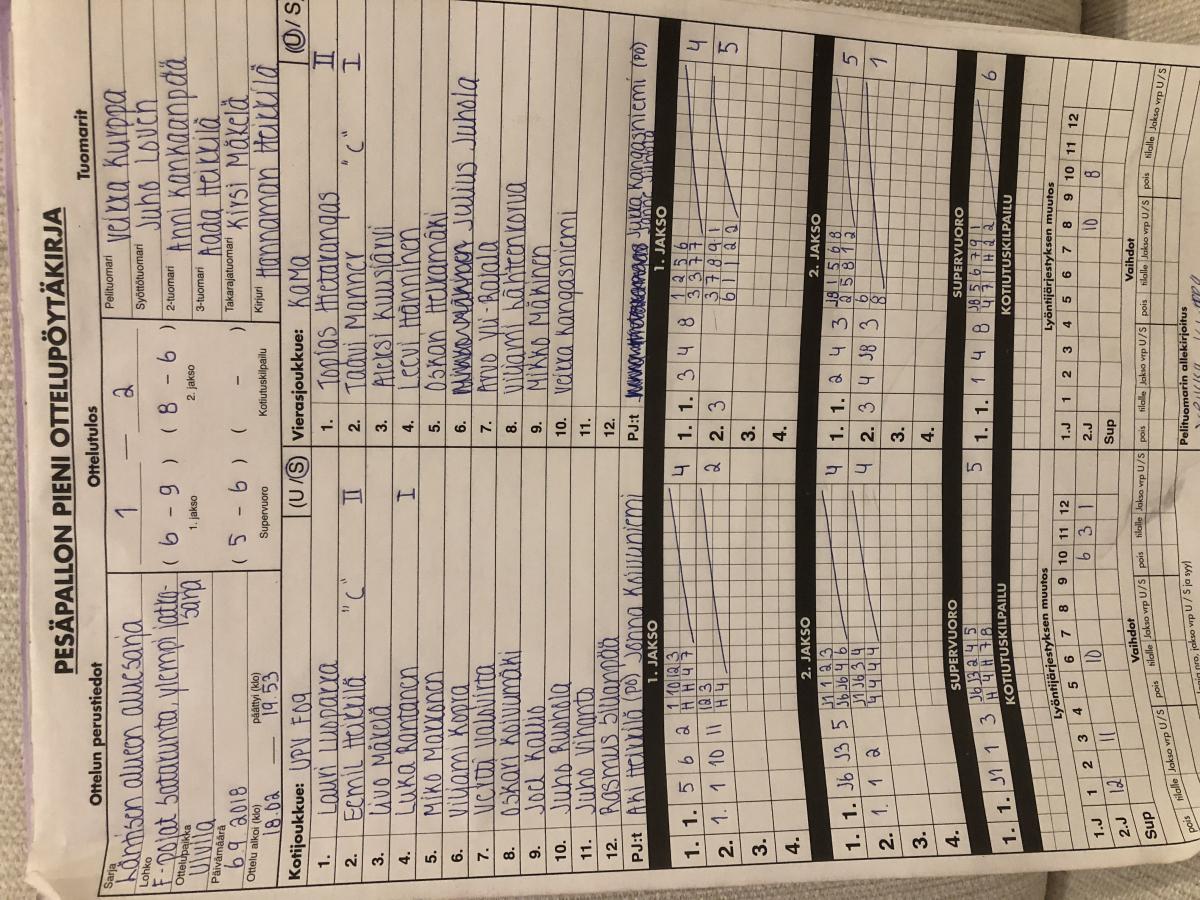 PESÄPALLON PIENI OTTELUPÖYTÄKIRJA
Ottelun perustiedot
Sarja
Läntisen alueen aluesarja
Lohko
F-pojat Satakunta, ylempi jatko-
sarja
Ottelupaikka
Ulvila
Päivämäärä
6.9. 2018
Ottelu alkoi (klo)
18.02
päättyi (klo)
19.53
Ottelutulos
1 — 2
( 6 - 9 ) ( 8 - 6 )
1. jakso 2. jakso
( 5 - 6 ) ( - )
Supervuoro Kotiutuskilpailu
Tuomarit
Pelituomari Veikka Kurppa
Syöttötuomari Juho Louen
2-tuomari Anni Kankaanpää
3-tuomari Aada Heikkilä
Takarajatuomari Kirsi Mäkelä
Kirjuri Hannamari Heikkilä
Kotijoukkue: UPV F09 (U/S)
1. Lauri Luoparra
2. Eemil Heikkilä "C" II
3. Iivo Mäkelä
4. Luka Rantanen I
5. Miko Makkonen
6. Viljami Kopra
7. Veitti Valavirta
8. Oskari Koivumäki
9. Joel Kallio
10. Juho Ruohola
11. Juho Vihanto
12. Rasmus Sillanpää
PJ:t Aki Heikkilä (PO) Jonna Koivuniemi
Vierasjoukkue: KaMa (U/S)
1. Topias Hietakangas II
2. Taavi Manner "C" I
3. Aleksi Kuusjärvi
4. Leevi Hänninen
5. Oskari Heikämäki
6. Julius Juhola
7. Arvo Yli-Rajala
8. Viljami Lähteenkorva
9. Mikko Mäkinen
10. Veikka Kangasniemi
11.
12.
PJ:t Jukka Kangasniemi (PO)
1. JAKSO
1. 1. 5 6 2 1 10 12 3 4
H H 4 7
2. 1. 1 10 11 12 3 2
H 4
3.
4.
1. JAKSO
1. 1. 3 4 8 1 2 5 6 4
3 3 7 7
2. 3 3 7 8 9 1 5
6 1 1 2 2
3.
4.
2. JAKSO
1. 1. J6 J3 5 J1 1 2 3 4
J6 J6 4 6
2. 1. 1 2 J1 J6 3 4 4
4 4 4 4
3.
4.
2. JAKSO
1. 1. 2 4 3 J8 1 5 6 8 5
2 5 8 1 2
2. 3 4 J8 3 6 1
8
3.
4.
SUPERVUORO
1. 1. J1 1 3 J6 J3 2 4 5 5
H 4 H 7 8
KOTIUTUSKILPAILU
SUPERVUORO
1. 1. 1 4 8 J8 5 6 7 9 1 6
4 7 1 H 2 2
KOTIUTUSKILPAILU
Lyöntijärjestyksen muutos
1 2 3 4 5 6 7 8 9 10 11 12
1.J 11 10 6 3 1
2.J 12
Sup
Vaihdot
pois tilalle Jakso vrp U/S pois tilalle Jakso vrp U/S pois tilalle Jakso vrp U/S
Lyöntijärjestyksen muutos
1.J 1 2 3 4 5 6 7 8 9 10 11 12
2.J 10 8
Sup
Vaihdot
pois tilalle Jakso vrp U/S pois tilalle Jakso vrp U/S pois tilalle Jakso vrp U/S
Pelituomarin allekirjoitus